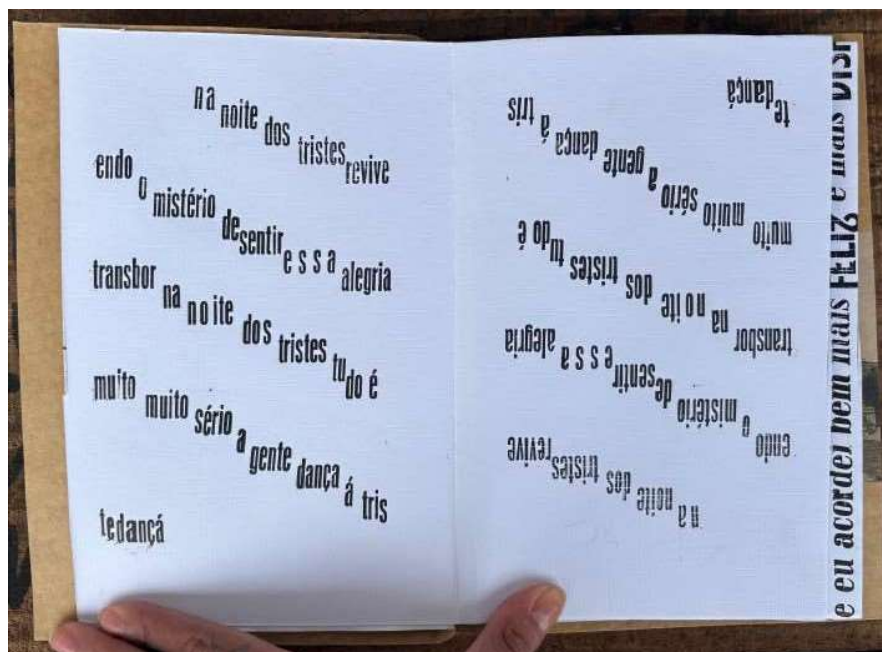 na noite dos tristes revive
endo o mistério de sentir essa alegria
transbor na noite dos tristes tudo é
muito muito sério a gente dança á tris
tedançá
na noite dos tristes revive
endo o mistério de sentir essa alegria
transbor na noite dos tristes tudo é
muito muito sério a gente dança á tris
tedançá
e eu acordei bem mais FELIZ e mais